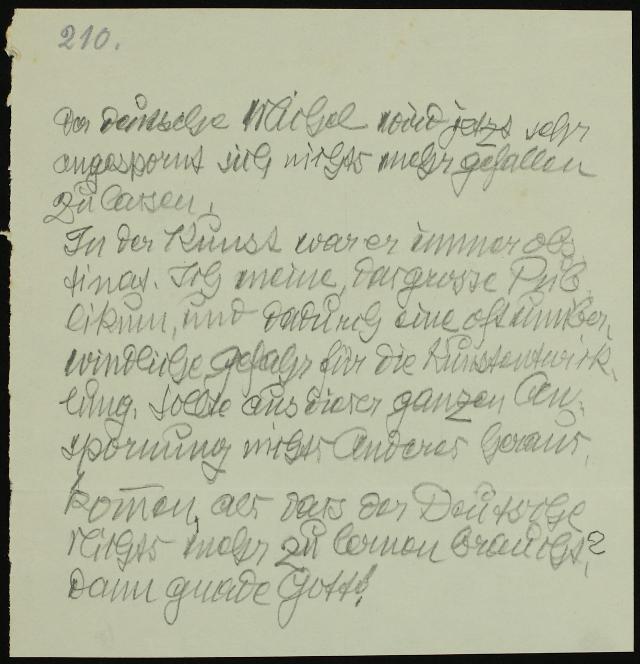 210.
Der deutsche Michel wird jetzt sehr
angespornt sich nichts mehr gefallen
zu lassen.
In der Kunst war er immer obs
tinat. Ich meine, das grosse Pub
likum, und dadurch eine oft unüber
windliche Gefahr für die Kunstentwick-
lung. Sollte aus dieser ganzen An-
spornung nichts Anderes heraus
komen, als dass der Deutsche
Nichts mehr zu lernen braucht?
Dann gnade Gott!